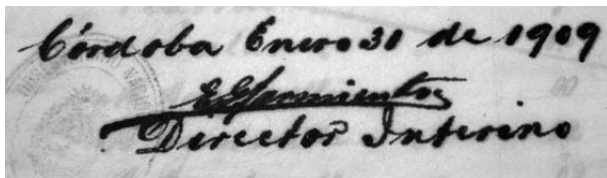 Córdoba Enero 31 de 1909
E. Sarmiento
Director Interino